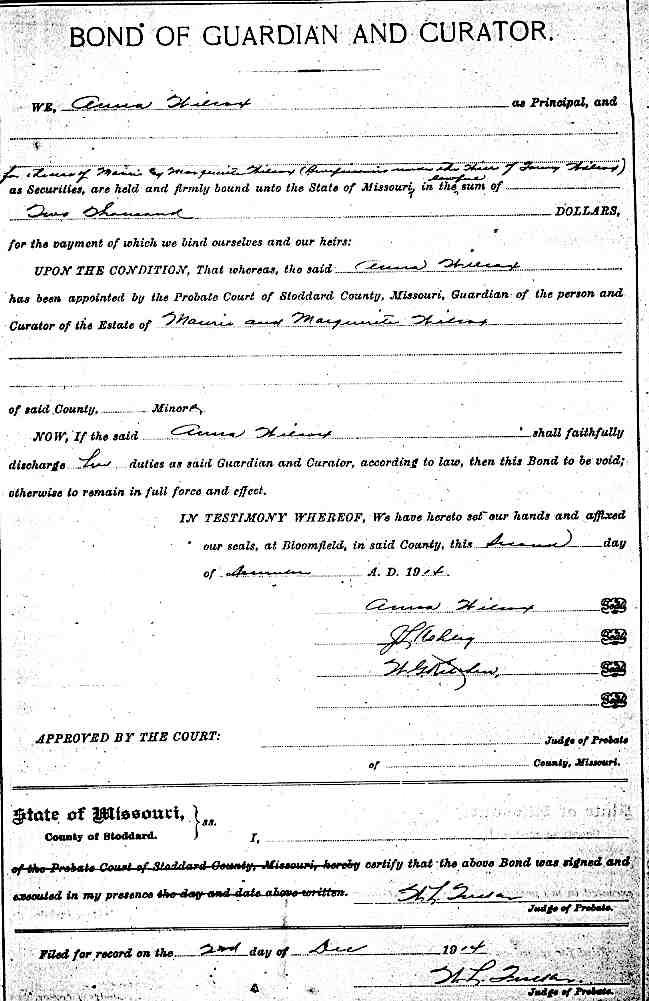 BOND OF GUARDIAN AND CURATOR.
WE, Anna Wilcox as Principal, and
of Marguerite Wilcox
as Securities, are held and firmly bound unto the State of Missouri, in the lawful sum of
Two Thousand DOLLARS,
for the payment of which we bind ourselves and our heirs:
UPON THE CONDITION, That whereas, the said Anna Wilcox
has been appointed by the Probate Court of Stoddard County, Missouri, Guardian of the person and
Curator of the Estate of Maurie and Marguerite Wilcox
of said County, Minors
NOW, If the said Anna Wilcox shall faithfully
discharge her duties as said Guardian and Curator, according to law, then this Bond to be void;
otherwise to remain in full force and effect.
IN TESTIMONY WHEREOF, We have hereto set our hands and affixed
our seals, at Bloomfield, in said County, this Second day
of A. D. 1914.
Anna Wilcox Seal
Seal
Seal
Seal
APPROVED BY THE COURT:
Judge of Probate
of County, Missouri.
State of Missouri, } ss.
County of Stoddard. I,
of the Probate Court of Stoddard County, Missouri, hereby certify that the above Bond was signed and
executed in my presence the day and date above written.
Judge of Probate.
Filed for record on the 2nd day of Dec 1914
Judge of Probate.